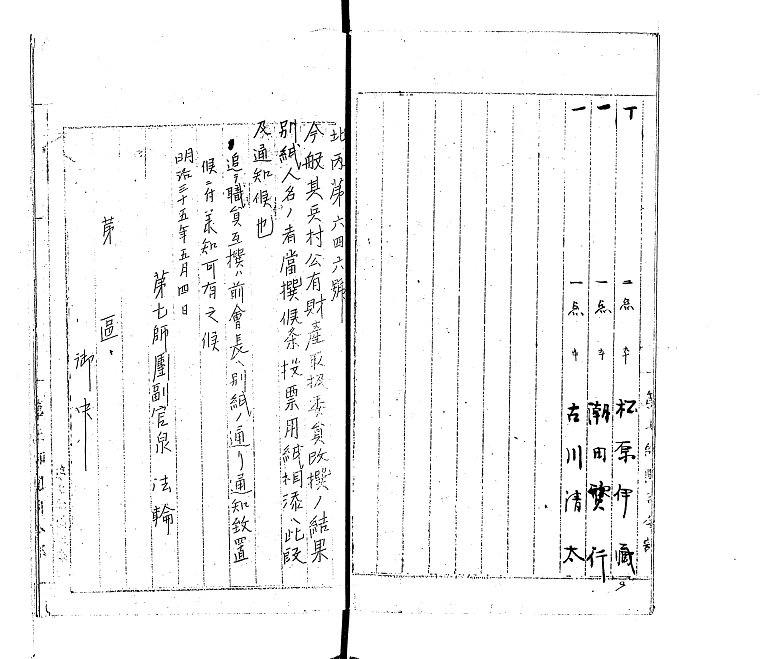 丁 二点 〃 松原伊蔵
一 一点 〃 潮田實行
一 一点 〃 古川清太
北丙第六四六號
今般其兵村公有財産取扱委員改撰ノ結果
別紙人名ノ者當撰候条投票用紙相添ヘ此段
及通知候也
追テ職員互撰ハ前會長ヘ別紙ノ通リ通知致置
候ニ付承知可有之候
明治三十五年五月四日
第七師團副官泉 法輪
第 區
御中